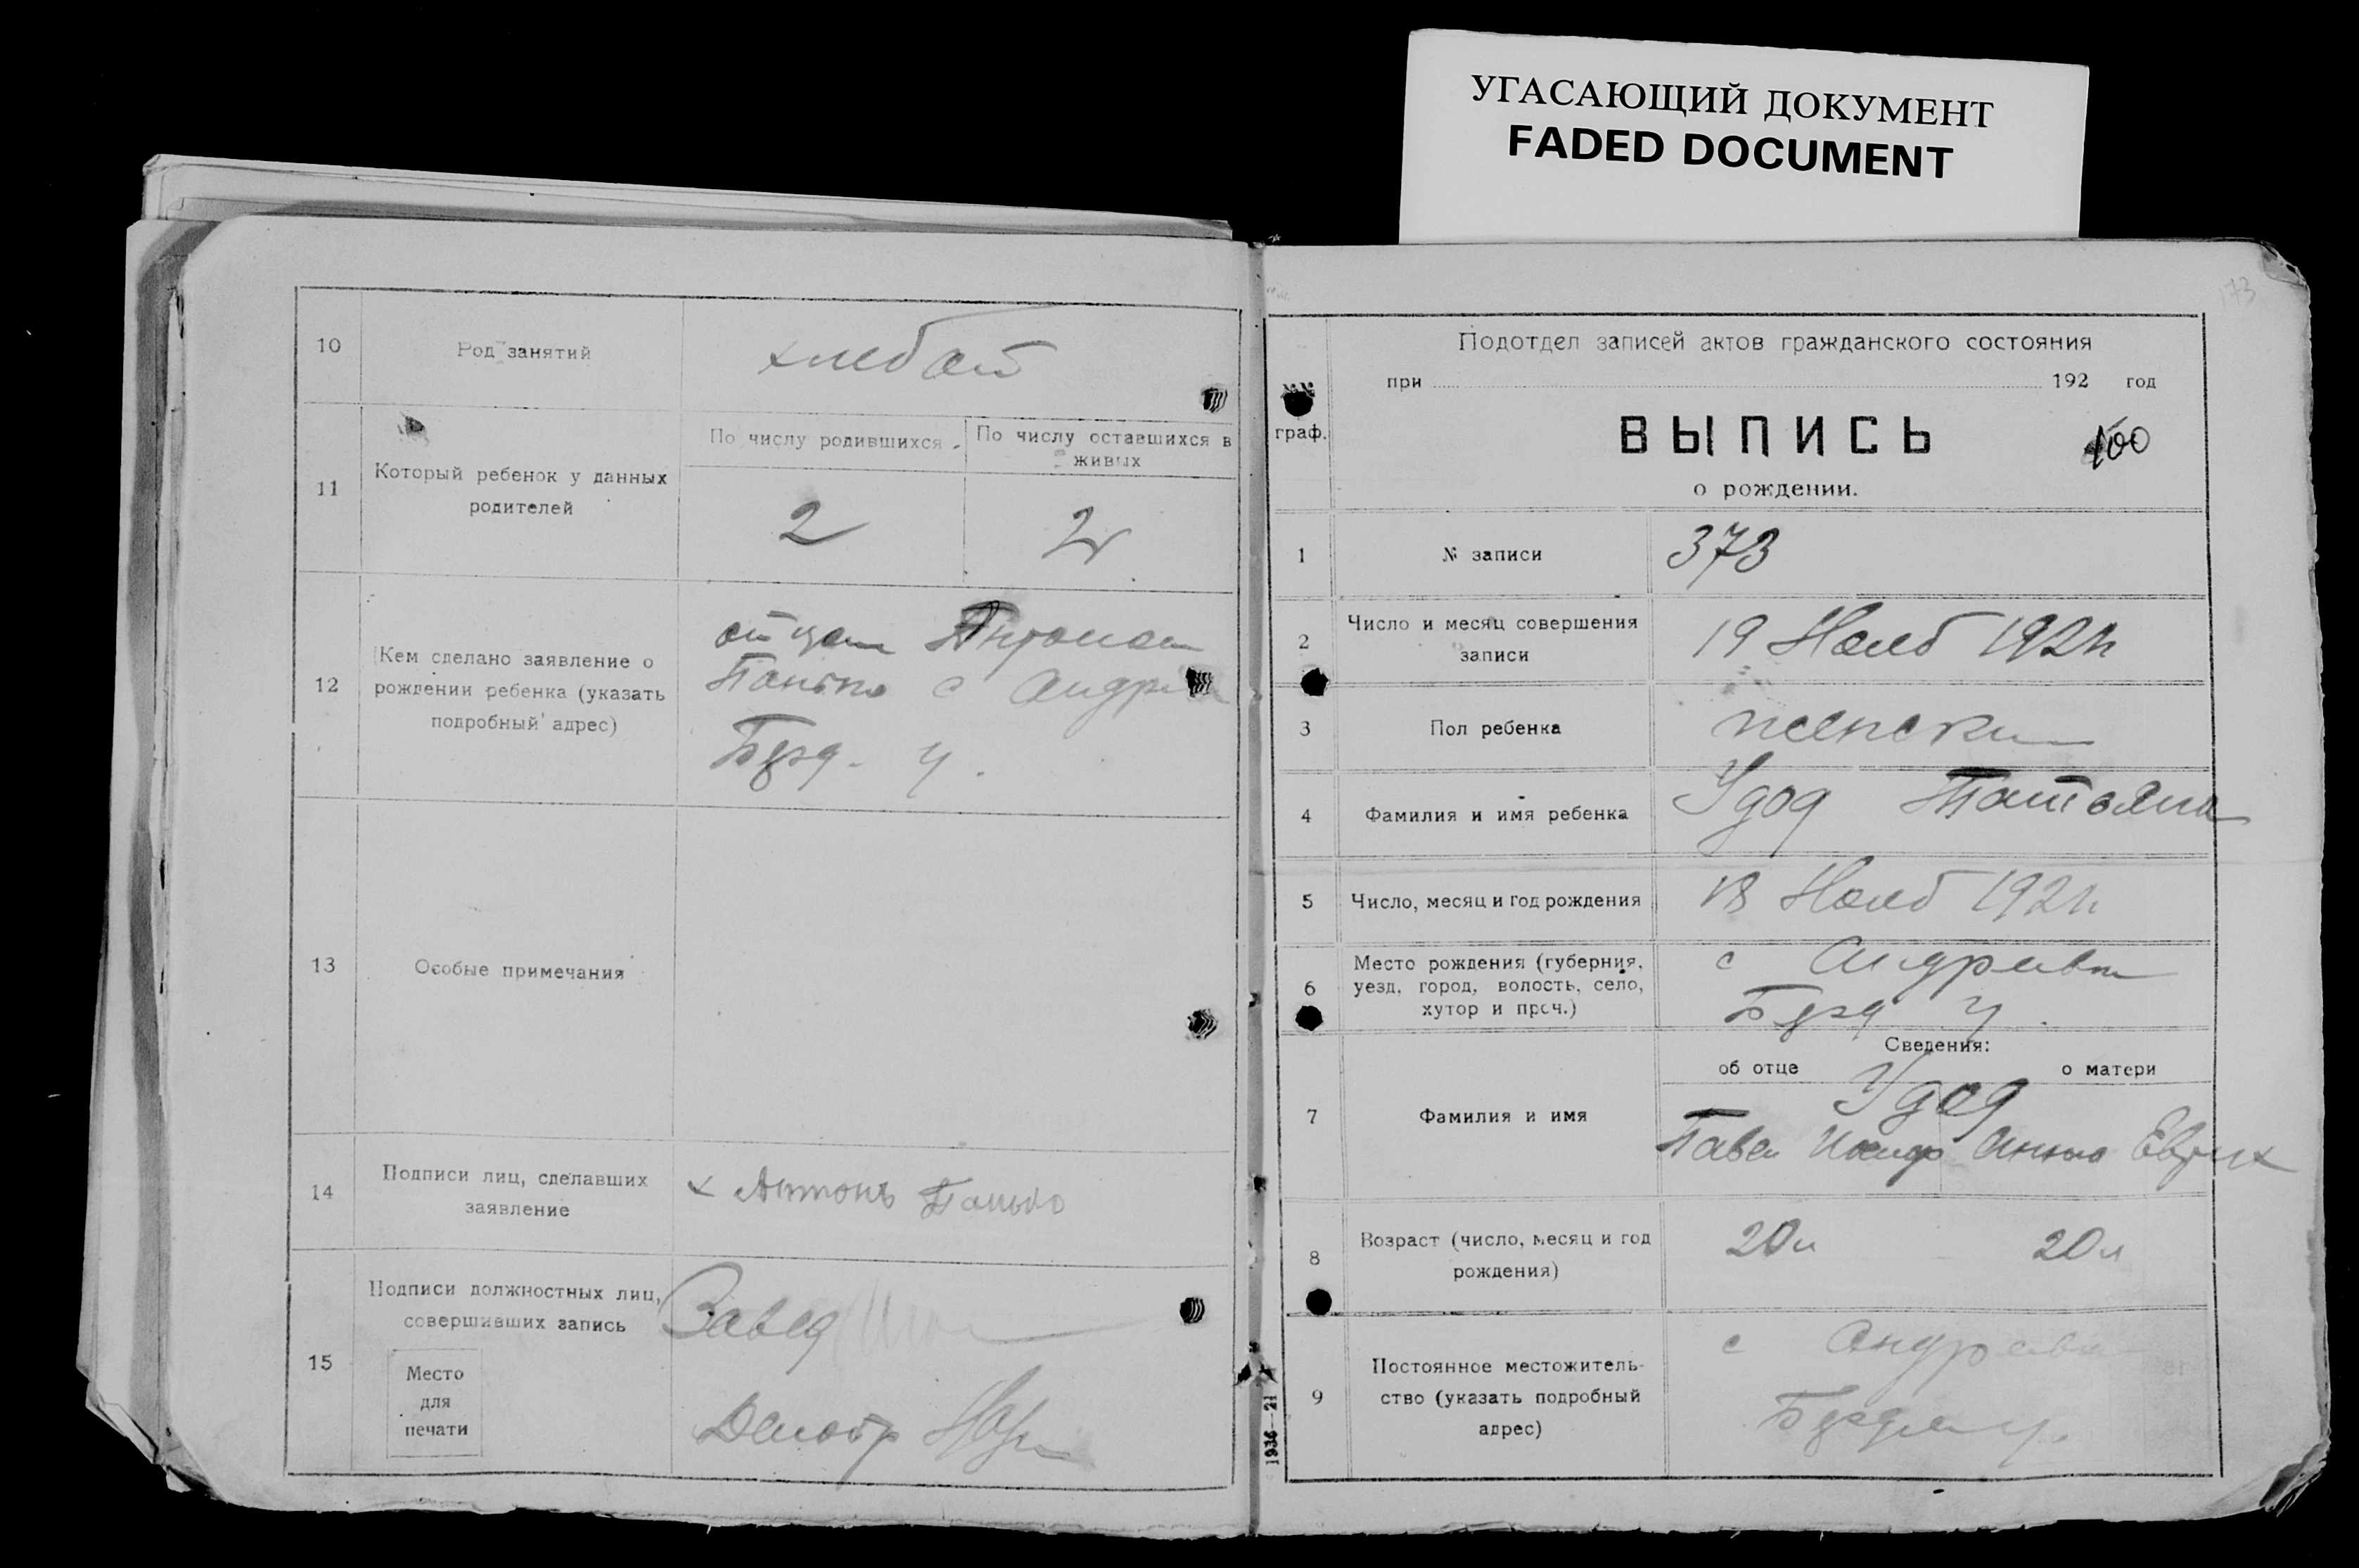 УГАСАЮЩИЙ ДОКУМЕНТ
FADED DOCUMENT
10
Род занятий
хлебоп
11
Который ребенок у данных
родителей
По числу родившихся
По числу оставшихся в
живых
2
2
12
Кем сделано заявление о
рождении ребенка (указать
подробный адрес)
отцом
Панько с Андр
Берд. у.
13
Особые примечания
14
Подписи лиц, сделавших
заявление
х Антонъ Панько
15
Подписи должностных лиц,
совершивших запись
Место
для
печати
Завед
Делопр
173
Подотдел записей актов гражданского состояния
при 192 год
граф.
ВЫПИСЬ
100
о рождении.
1
№ записи
373
2
Число и месяц совершения
записи
19 Нояб 192
3
Пол ребенка
женски
4
Фамилия и имя ребенка
Удод Татьяна
5
Число, месяц и год рождения
18 Нояб 192
6
Место рождения (губерния,
уезд, город, волость, село,
хутор и проч.)
с Андривк
Берд у.
7
Фамилия и имя
Сведения:
об отце
о матери
Удод
Павел Иосиф Анна
8
Возраст (число, месяц и год
рождения)
20 л
20 л
9
Постоянное местожитель-
ство (указать подробный
адрес)
с
1936—21